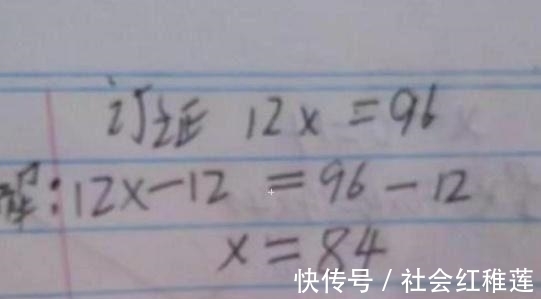 订证 12x=96
解:12x-12=96-12
x=84
快传号/社会红稚莲